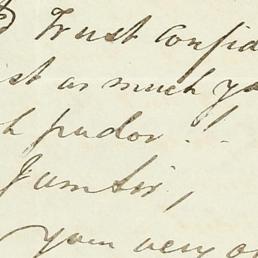 Trust Confid
ist as much y
h pudor !
I am Sir,
your very o